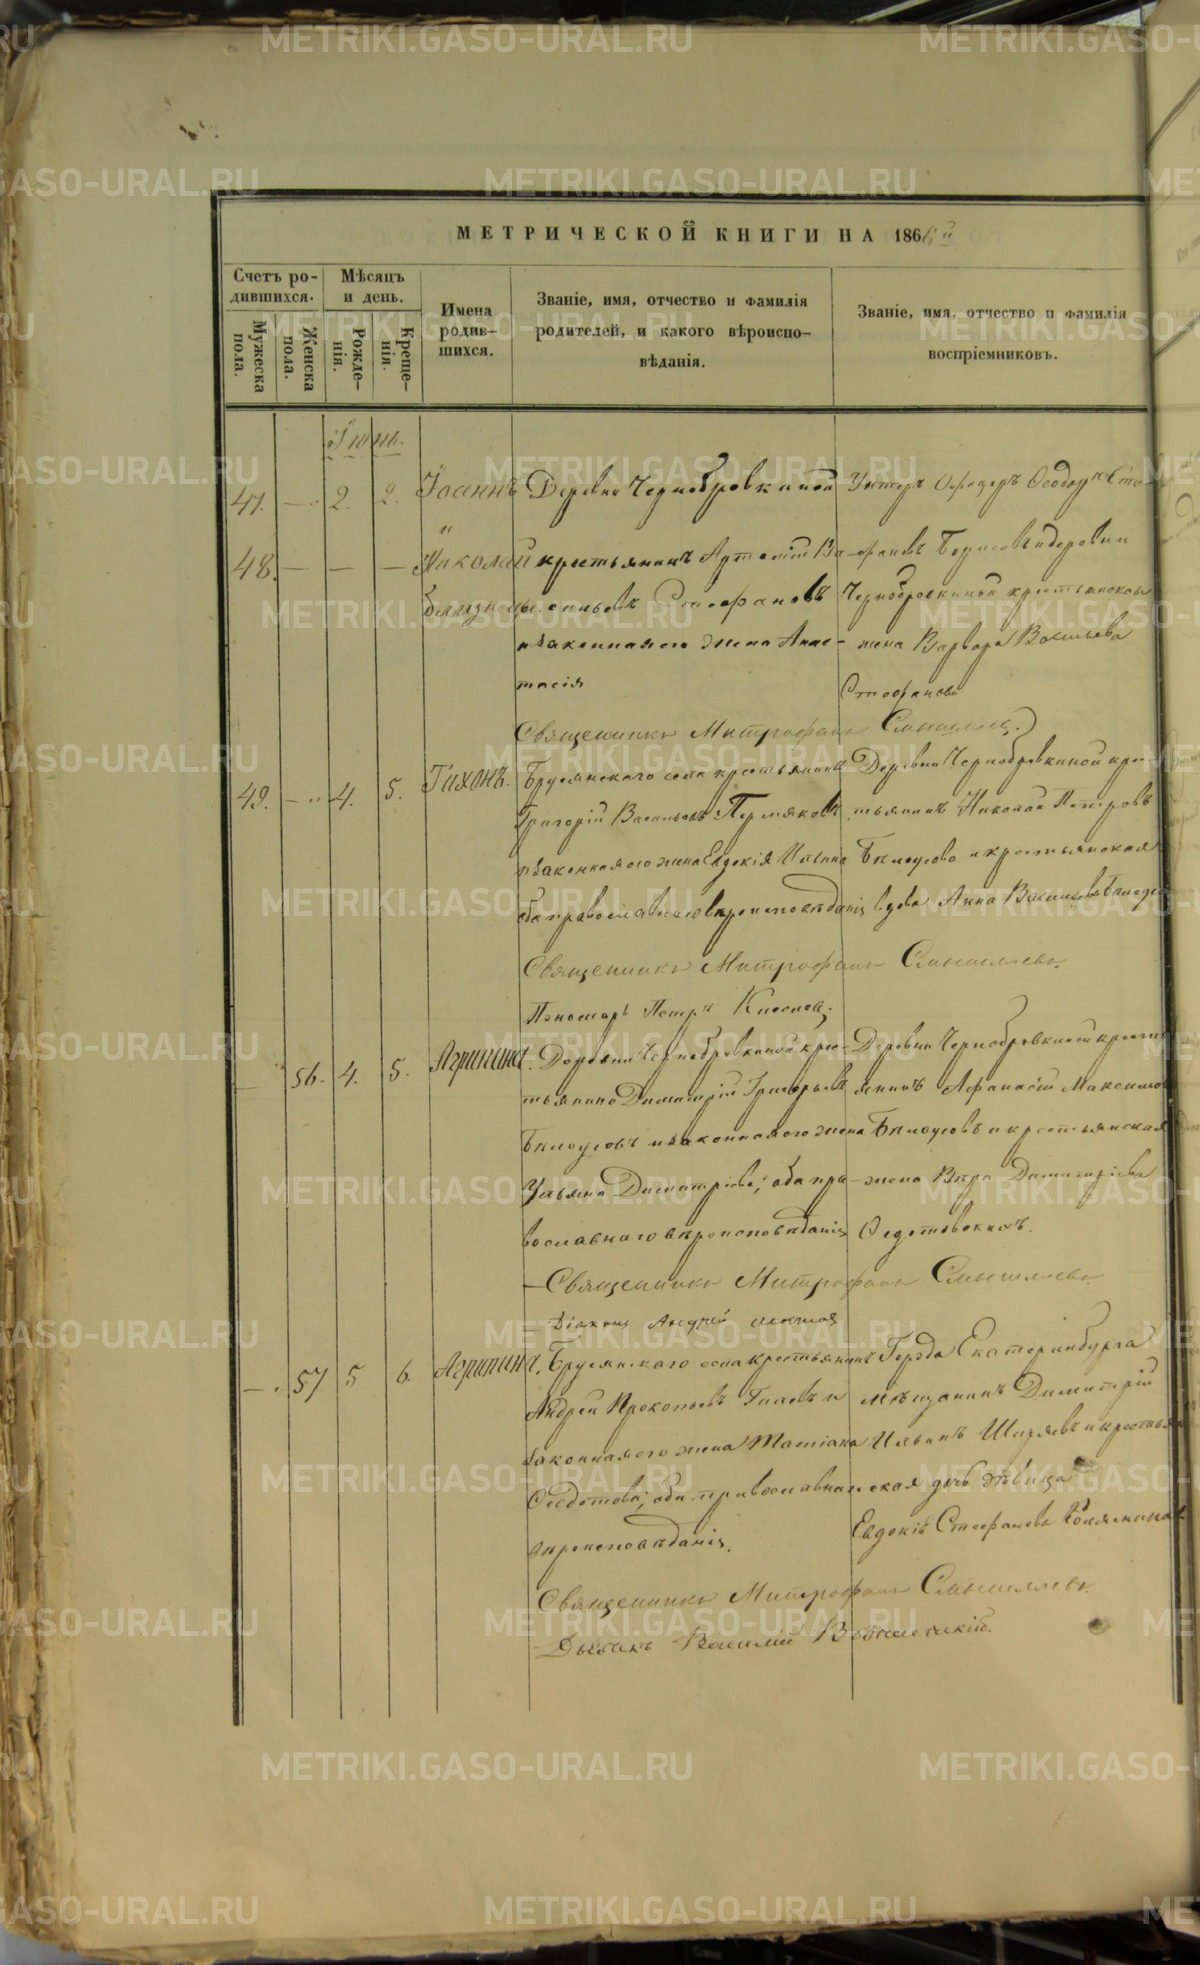 МЕТРИЧЕСКОЙ КНИГИ НА 186
Счетъ ро-
дившихся.
Мужеска
пола.
Женска
пола.
Мѣсяцъ
и день.
Рожде-
нія.
Креще-
нія.
Имена
родив-
шихся.
Званіе, имя, отчество и фамилія
родителей, и какого вѣроиспо-
вѣданія.
Званіе, имя, отчество и фамилія
воспріемниковъ.
47. 2. 2. Іоаннъ
и
48. Николай
близнецы.
Деревни Чернобровкиной
крестьянинъ Артемій Ва-
сильевъ Стефановъ
и законная его жена Анас-
тасія
Унтеръ Офицеръ Ѳеодоръ Сте-
фановъ деревни
Чернобровкиной крестьянская
жена Варвара Васильева
Стефанова
Священникъ Митрофанъ Смышляевъ.
49. 4. 5. Тихонъ.
Бруснянского села крестьянинъ
Григорій Васильевъ Пермяковъ
и законная его жена Евдокія Ильина
оба православнаго вѣроисповѣданія
Деревни Чернобровкиной крес-
тьянинъ Николай Петровъ
Бѣлоусовъ и крестьянская
вдова Анна Васильева
Священникъ Митрофанъ Смышляевъ.
Пономарь Петръ
56. 4. 5. Агрипина.
Деревни Чернобровкиной крес-
тьянинъ Димитрій Григорьевъ
Бѣлоусовъ и законная его жена
Ульяна Димитріева; оба пра-
вославнаго вѣроисповѣданія
Деревни Чернобровкиной крестья-
янинъ Афанасій Максимовъ
Бѣлоусовъ и крестьянская
жена Вѣра Димитріева
Священникъ Митрофанъ Смышляевъ.
Діаконъ Андрей
57 5 6. Агрипина.
Бруснянского села крестьянинъ
Андрей Прокопьевъ и
законная его жена Татіана
Ѳедотова; оба православнаго
вѣроисповѣданія.
Города Екатеринбурга
мѣщанинъ Димитрій
Ильинъ и крестьян-
ская дочь дѣвица
Евдокія Стефанова
Священникъ Митрофанъ Смышляевъ.
Дьячекъ Василій
METRIKI.GASO-URAL.RU